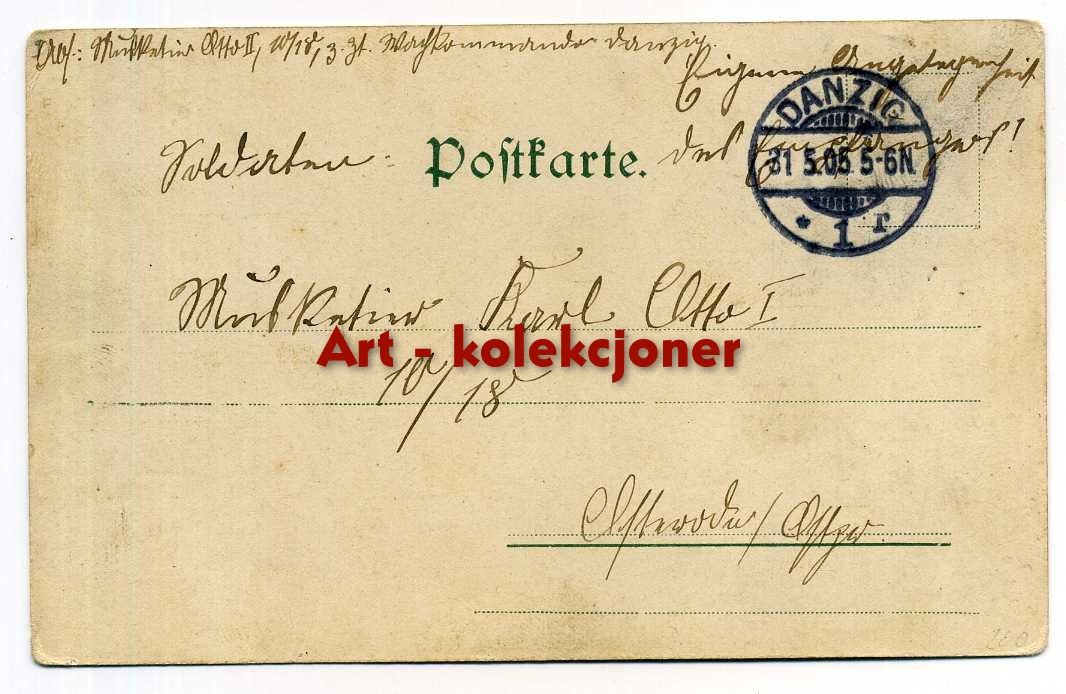 Abs.: Musketier Otto II, 10/18, z. Zt. Wachkommando Danzig.
Eigene Angelegenheit
des Empfängers!
Soldaten-
Postkarte.
DANZIG
31 5.05 5-6N.
* 1 r
Musketier Karl Otto I
Art - kolekcjoner
10/18
Osterode/Ostpr.